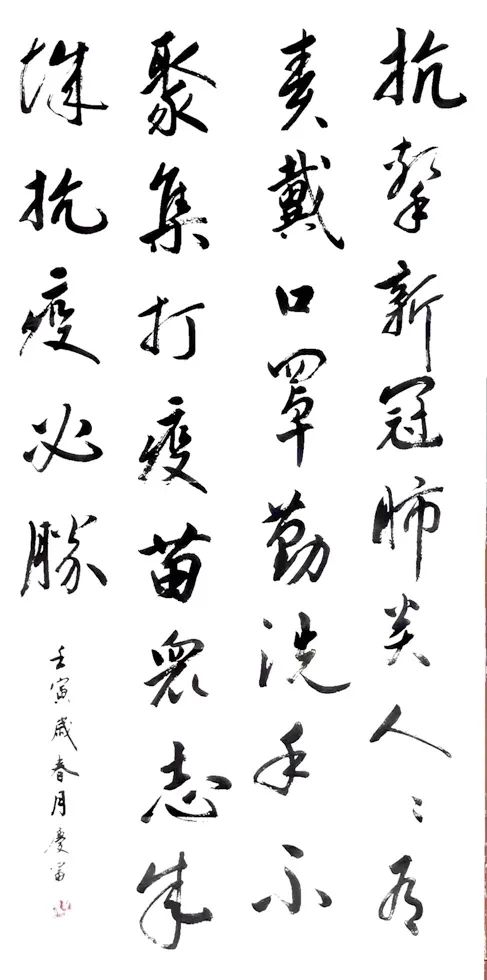 抗擊新冠肺炎人〻有
责戴口罩勤洗手不
聚集打疫苗眾志成
城抗疫必勝
壬寅歲春月慶富